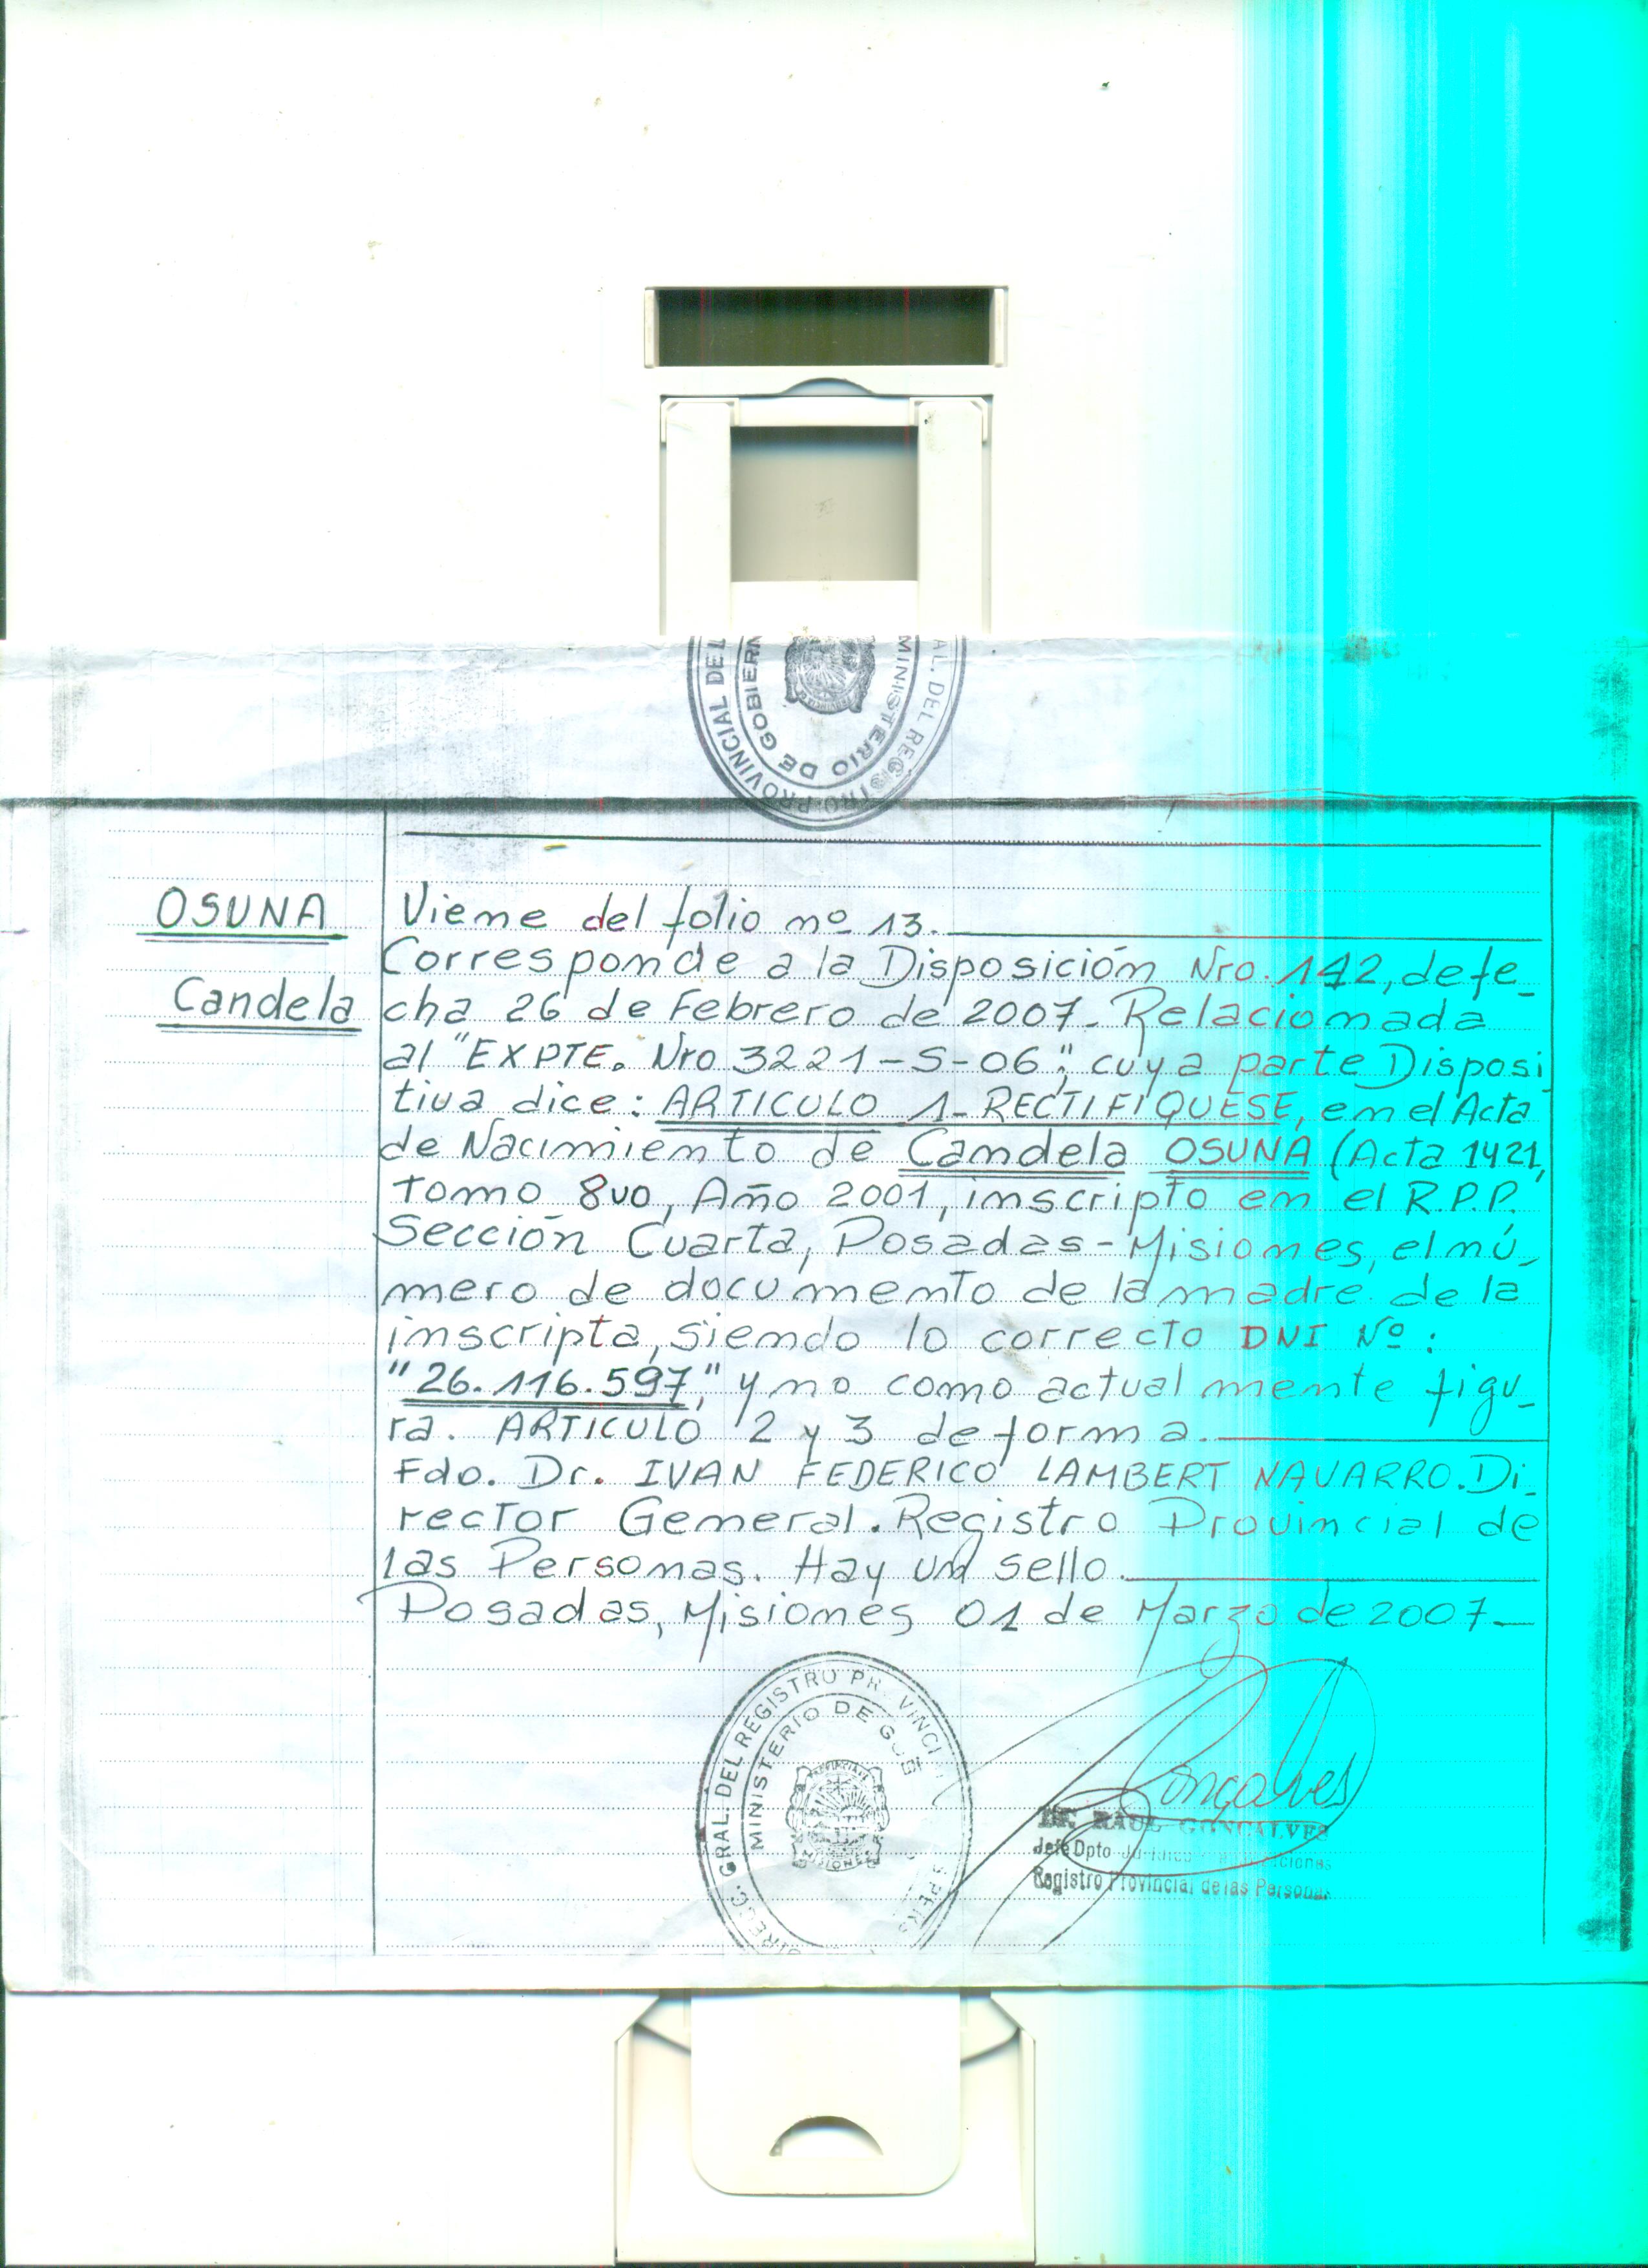 AL. DEL REGISTRO PROVINCIAL DE L
MINISTERIO DE GOBIERN
OSUNA
Candela
Viene del folio nº 13.
Corresponde a la Disposición Nro. 142, de fe_
cha 26 de Febrero de 2007. Relacionada
al "EXPTE. Nro 3221-S-06", cuya parte Disposi_
tiva dice: ARTICULO 1- RECTIFIQUESE, en el Acta
de Nacimiento de Candela OSUNA (Acta 1421,
Tomo 8vo, Año 2001, inscripto en el R.P.P.
Sección Cuarta, Posadas-Misiones, el nú_
mero de documento de la madre de la
inscripta, siendo lo correcto DNI Nº:
"26.116.597", y no como actualmente figu_
ra. ARTICULO 2 y 3 de forma.
Fdo. Dr. IVAN FEDERICO LAMBERT NAVARRO. Di_
rector General. Registro Provincial de
las Personas. Hay un sello.
Posadas, Misiones 01 de Marzo de 2007.
GRAL. DEL REGISTRO PR VINCI
MINISTERIO DE GOB
MISIONES
Gonçalves
DR. RAUL GONCALVES
Jefe Dpto
Registro Provincial de las Personas